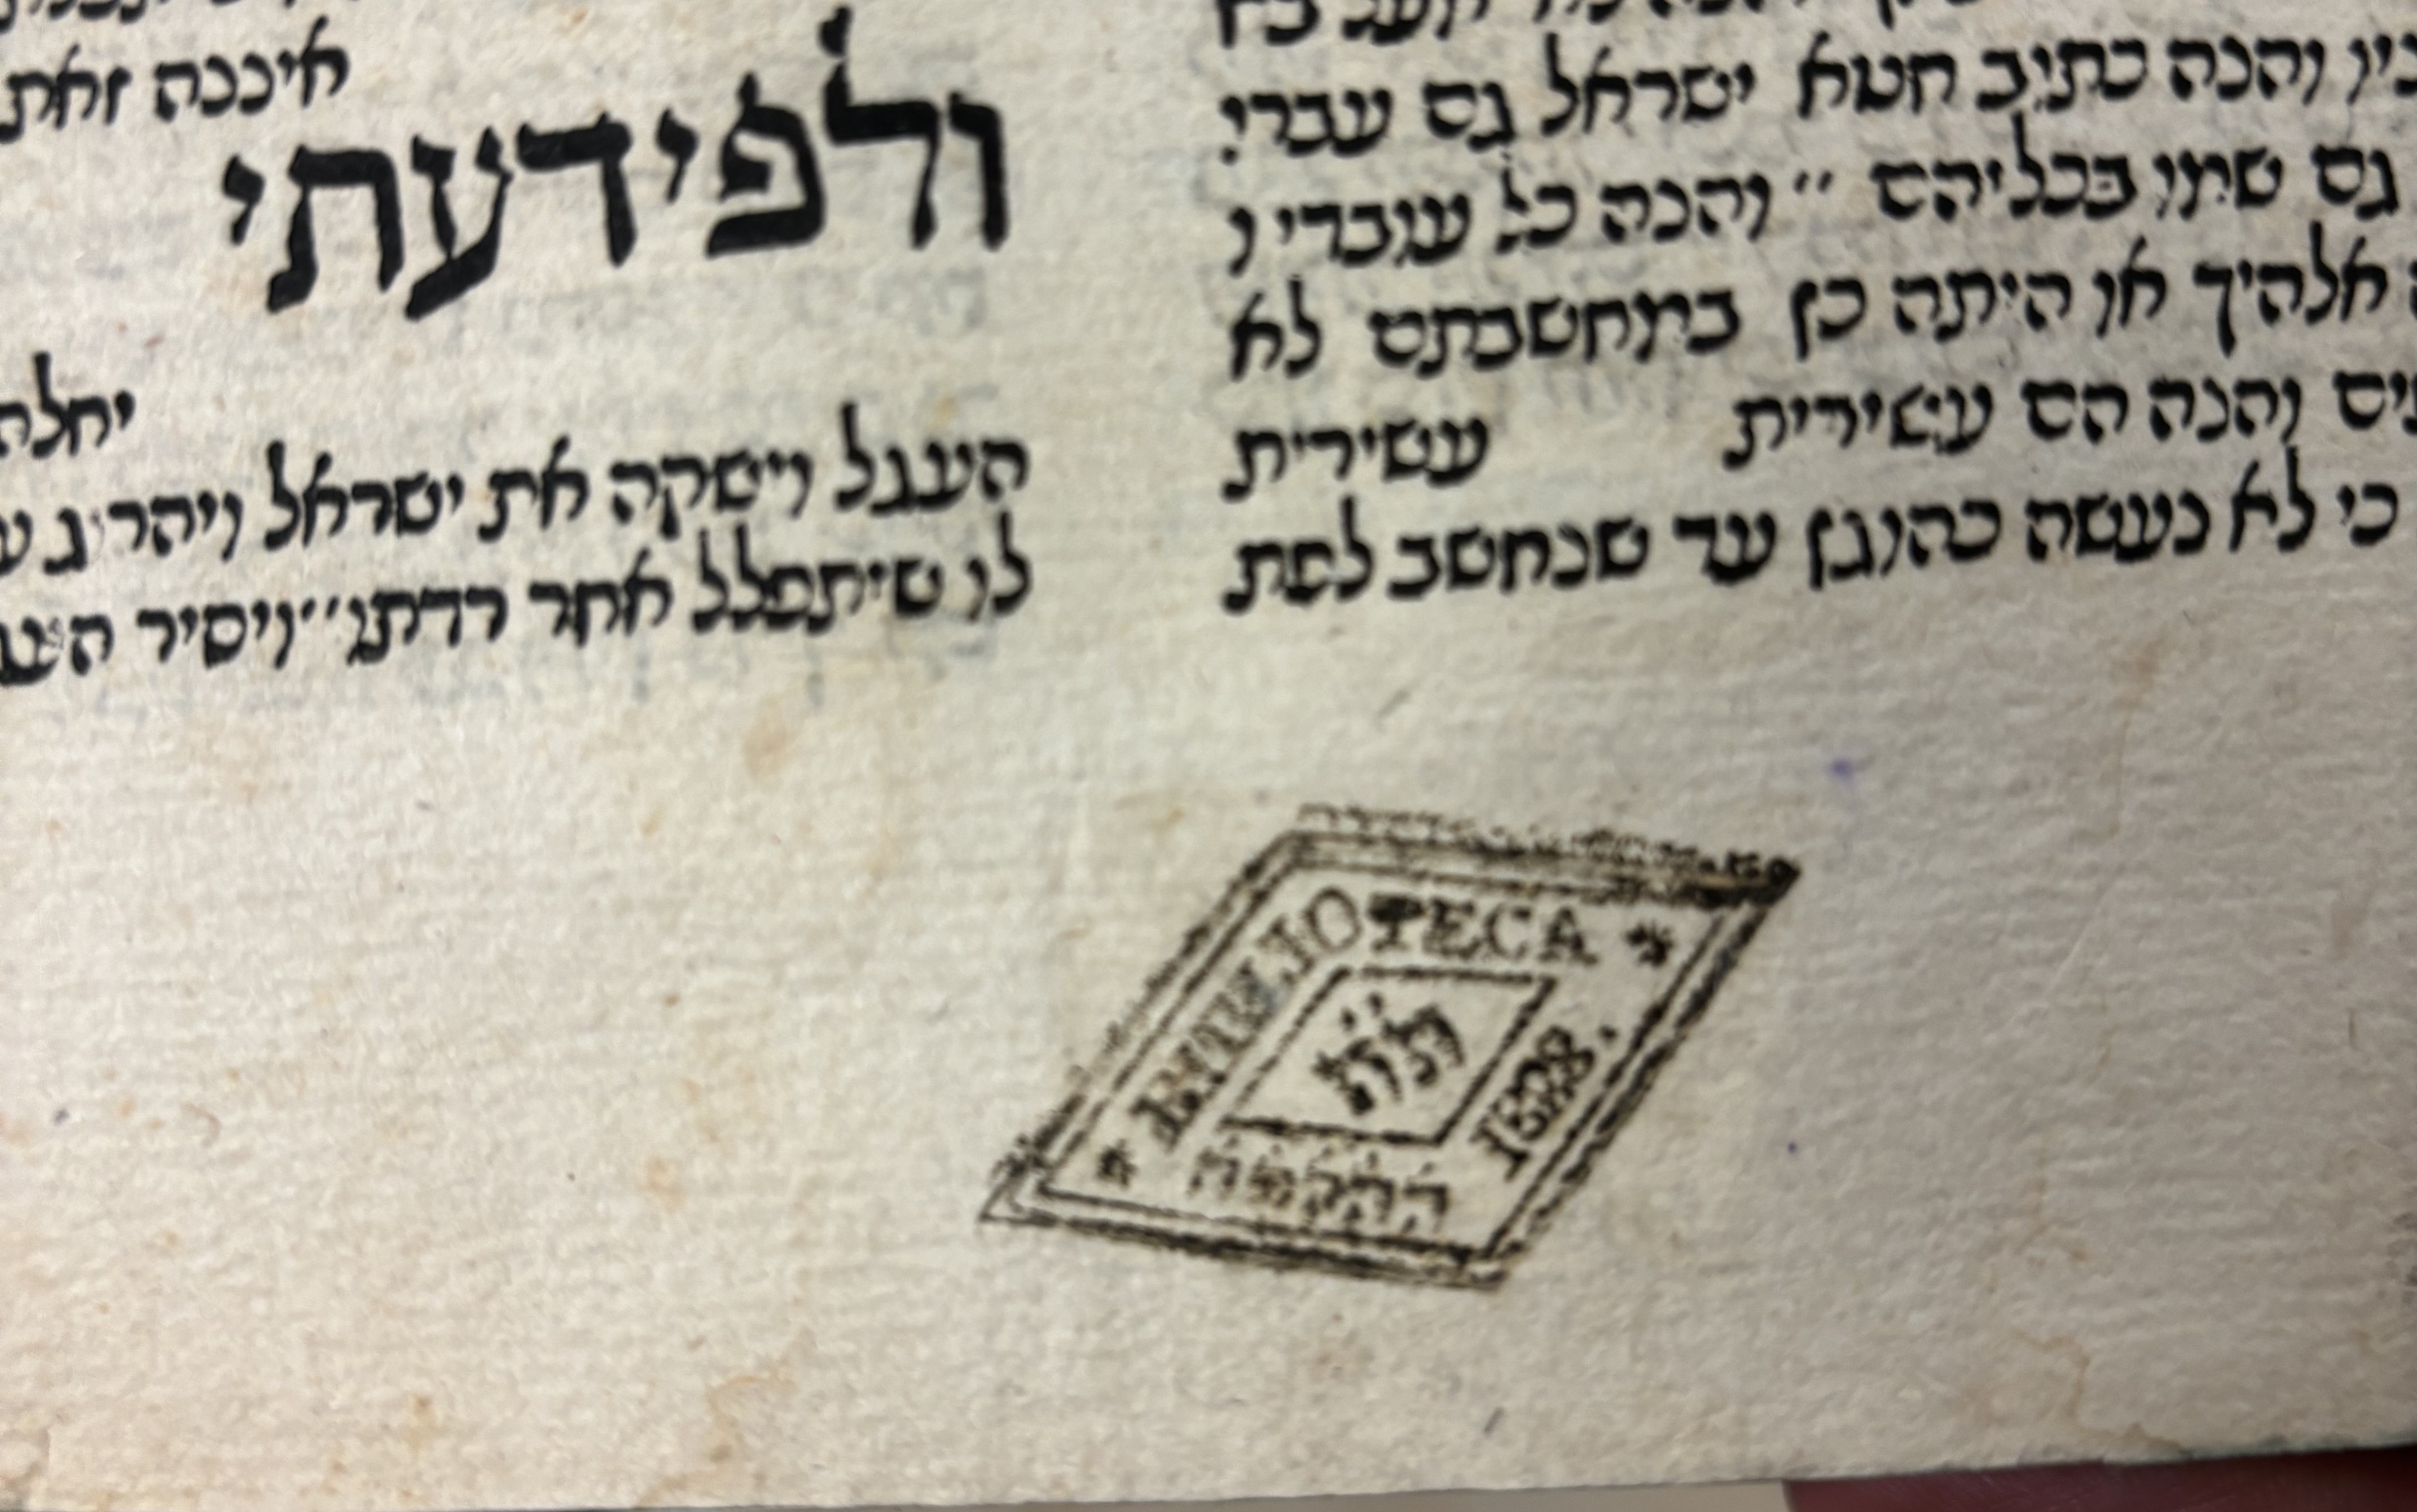 והנה כתיב חטא ישראל גם עברי
גם שמו בכליהם״ והנה כל עוברי ו
אלהיך או היתה כן במחשבתם לא
והנה הם עשירית עשירית
כי לא נעשה כהוגן עד שנחשב לפת
איננה זאת
ולפידעתי
העגל וישקה את ישראל ויהרוג
לו שיתפלל אחר רדתו״ויסיר
BIBLIOTECA
ת״ת
1828.